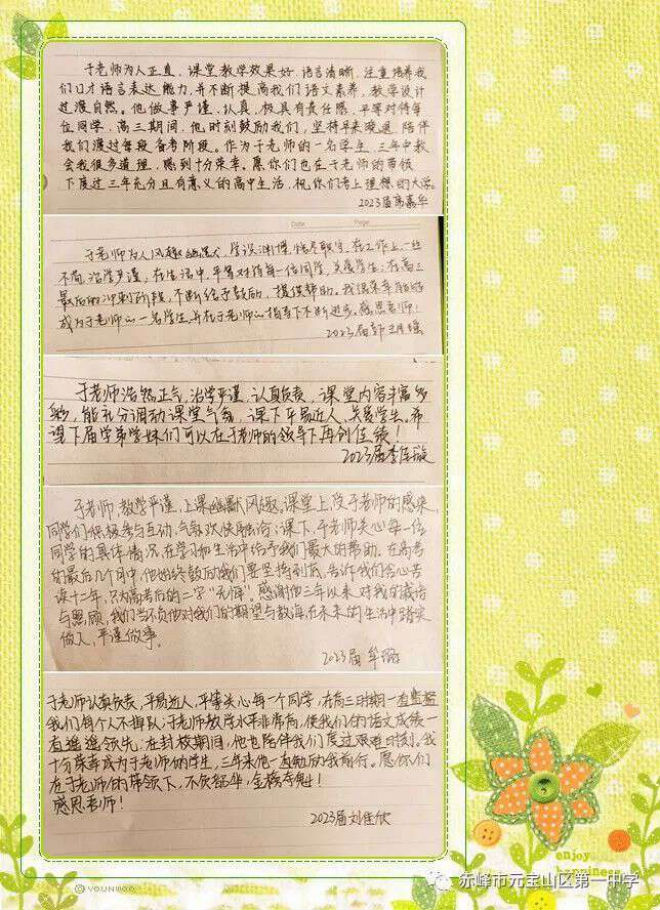 于老师为人正直，课堂教学效果好，语言清晰，注重培养我
们口才语言表达能力，并不断提高我们语文素养，教学设计
过渡自然。他做事严谨、认真，极具有责任感，平等对待每
位同学，高三期间，他时刻鼓励我们，坚持早来晚退，陪伴
我们渡过每段备考阶段。作为于老师的一名学生，三年中教
会我很多道理，感到十分荣幸。愿你们也在于老师的带领
下度过三年充分且有意义的高中生活，祝你们考上理想的大学。
2023届高嘉华
Date Page
于老师为人风趣幽默，学识渊博，恪尽职守，在工作上一丝
不苟，治学严谨，在生活中，平等对待每一位同学，关爱学生，在高三
最后的冲刺阶段，不断给予鼓励，提供帮助。我很荣幸能够
成为于老师的一名学生，并在于老师的指导下不断进步。感恩老师！
2023届韩
于老师浩然正气，治学严谨，认真负责，课堂内容丰富多
彩，能充分调动课堂气氛，课下平易近人、关爱学生，希
望下届学弟学妹们可以在于老师的领导下再创佳绩！
2023届李佳璇
于老师教学严谨，上课幽默风趣。课堂上，受于老师的感染，
同学们积极参与互动，气氛欢快融洽；课下，于老师关心每一位
同学的具体情况，在学习和生活中给予我们最大的帮助。在高考
的最后几个月中，他始终鼓励我们要坚持到底，告诉我们含心苦
读十二年，只为高考后的二字“无悔”。感谢他三年以来对我的栽培
与照顾，我们当不负他对我们的期望与教诲，在未来的生活中踏实
做人，严谨做事。
2023届 牟
于老师认真负责，平易近人，平等关心每一个同学，在高三时期一直监督
我们每个人不掉队；于老师教学水平非常高，使我们的语文成绩一
直遥遥领先，在封校期间，他也陪伴我们度过艰难时刻。我
十分荣幸成为于老师的学生，三年来他一直勉励我前行。愿你们
在于老师的带领下，不负韶华，金榜夺魁！
感恩老师！
2023届刘佳欣
enjoy
YOUNG
赤峰市元宝山区第一中学